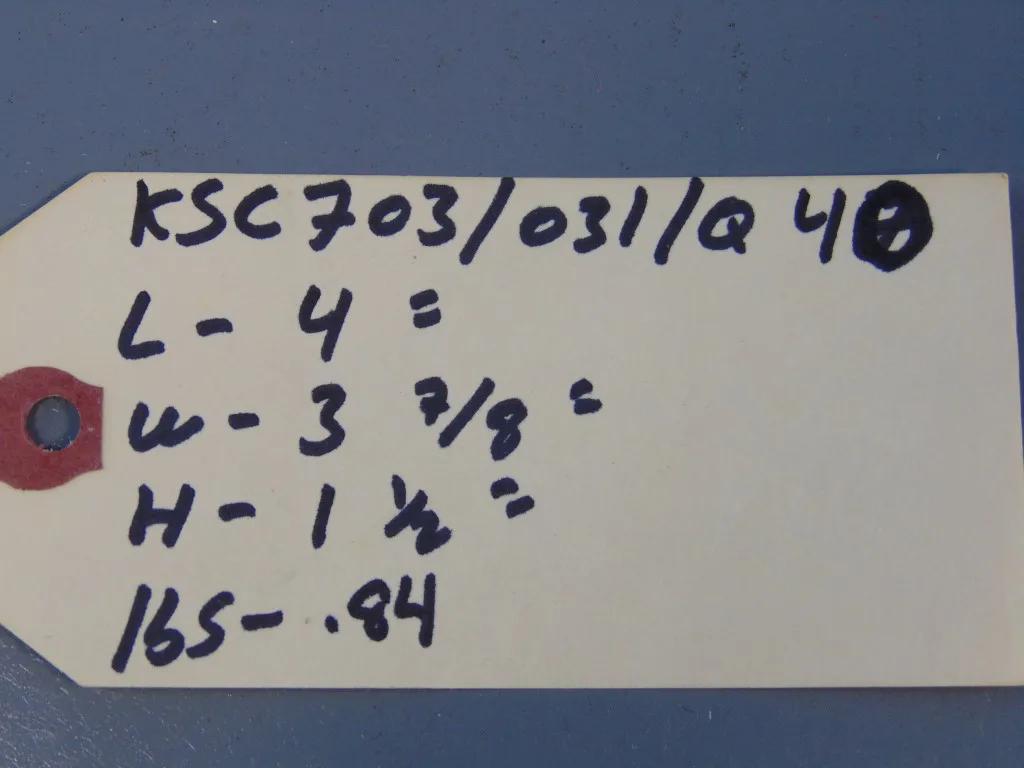 KSC703/031/Q 4
L- 4 "
W- 3 7/8 "
H- 1 1/2 "
lbs- .84